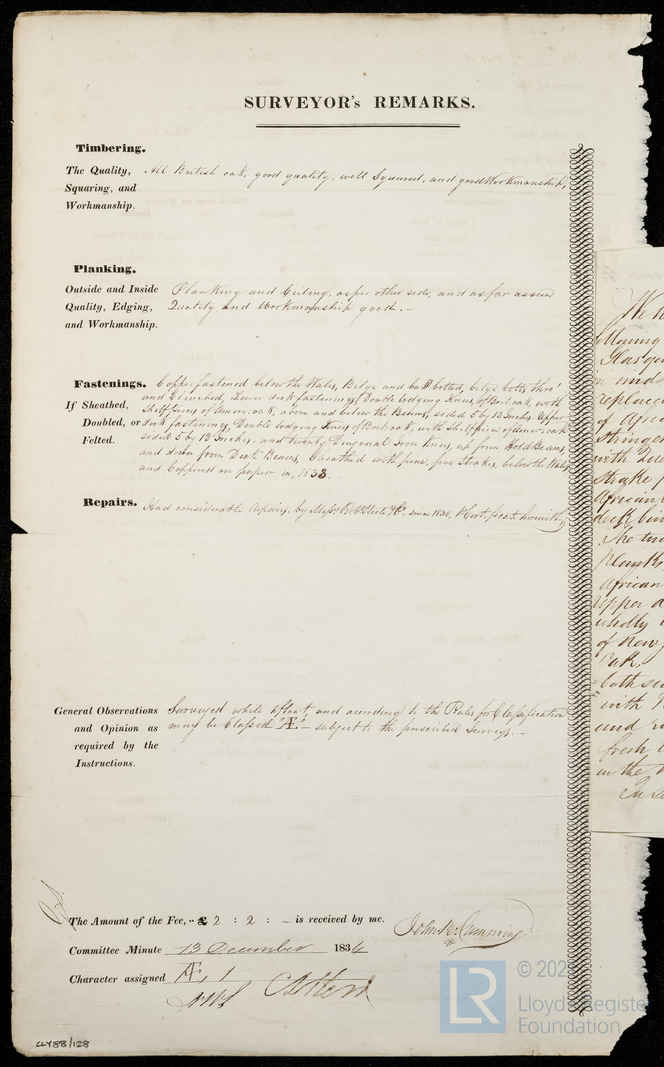 SURVEYOR's REMARKS.
Timbering.
The Quality, Squaring, and Workmanship.
All British oak, good quality, well Squared, and good Workmanship,
Planking.
Outside and Inside Quality, Edging, and Workmanship.
Planking and Ceiling, as per other side, and as far as seen
Quality, and Workmanship good. —
Fastenings.
If Sheathed, Doubled, or Felted.
Copper fastened below the Wales, Bilge and butt bolted, bilge bolts, thro'
and Clenched, Lower deck fastenings, Double lodging Knees, of Brit. oak, with
Shelf pieces of Amer. oak, above and below the Beams, sided 5 by 12 Inches. Upper
deck fastenings, Double lodging Knees of Brit. oak, with Shelf piece of Amer. oak
sided 5 by 12 Inches, and twenty Diagonal Iron Knees, up from Hold Beams,
and down from Deck Beams, Sheathed with pine, five Strakes, below the Wales
and Coppered on paper in, 1833.
Repairs.
Had considerable repairs, by Messrs Rob. Steele & Co. since 1832,
General Observations and Opinion as required by the Instructions.
Surveyed while afloat, and according to the Rules for Classification
may be Classed "Æ" — subject to the prescribed Surveys. —
The Amount of the Fee, .. £ 2 : 2 : — is received by me.
John
Committee Minute 13 December 1834
Character assigned Æ, 1
LLY88/128
We
following
Glasgow
replaced
of Afric
Stringer
with
strake
African
deck
The
Planks
African
Upper
wholly
of New
Oak,
both
with
and
fresh
in the
LR
© 202
Lloyd's Register
Foundation